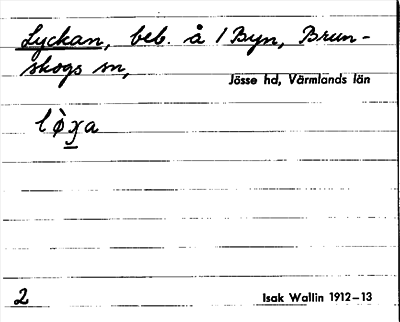 Lyckan, beb. å 1 Byn, Brun-
skogs sn,
Jösse hd, Värmlands län
lø̀ɣa
2
Isak Wallin 1912–13